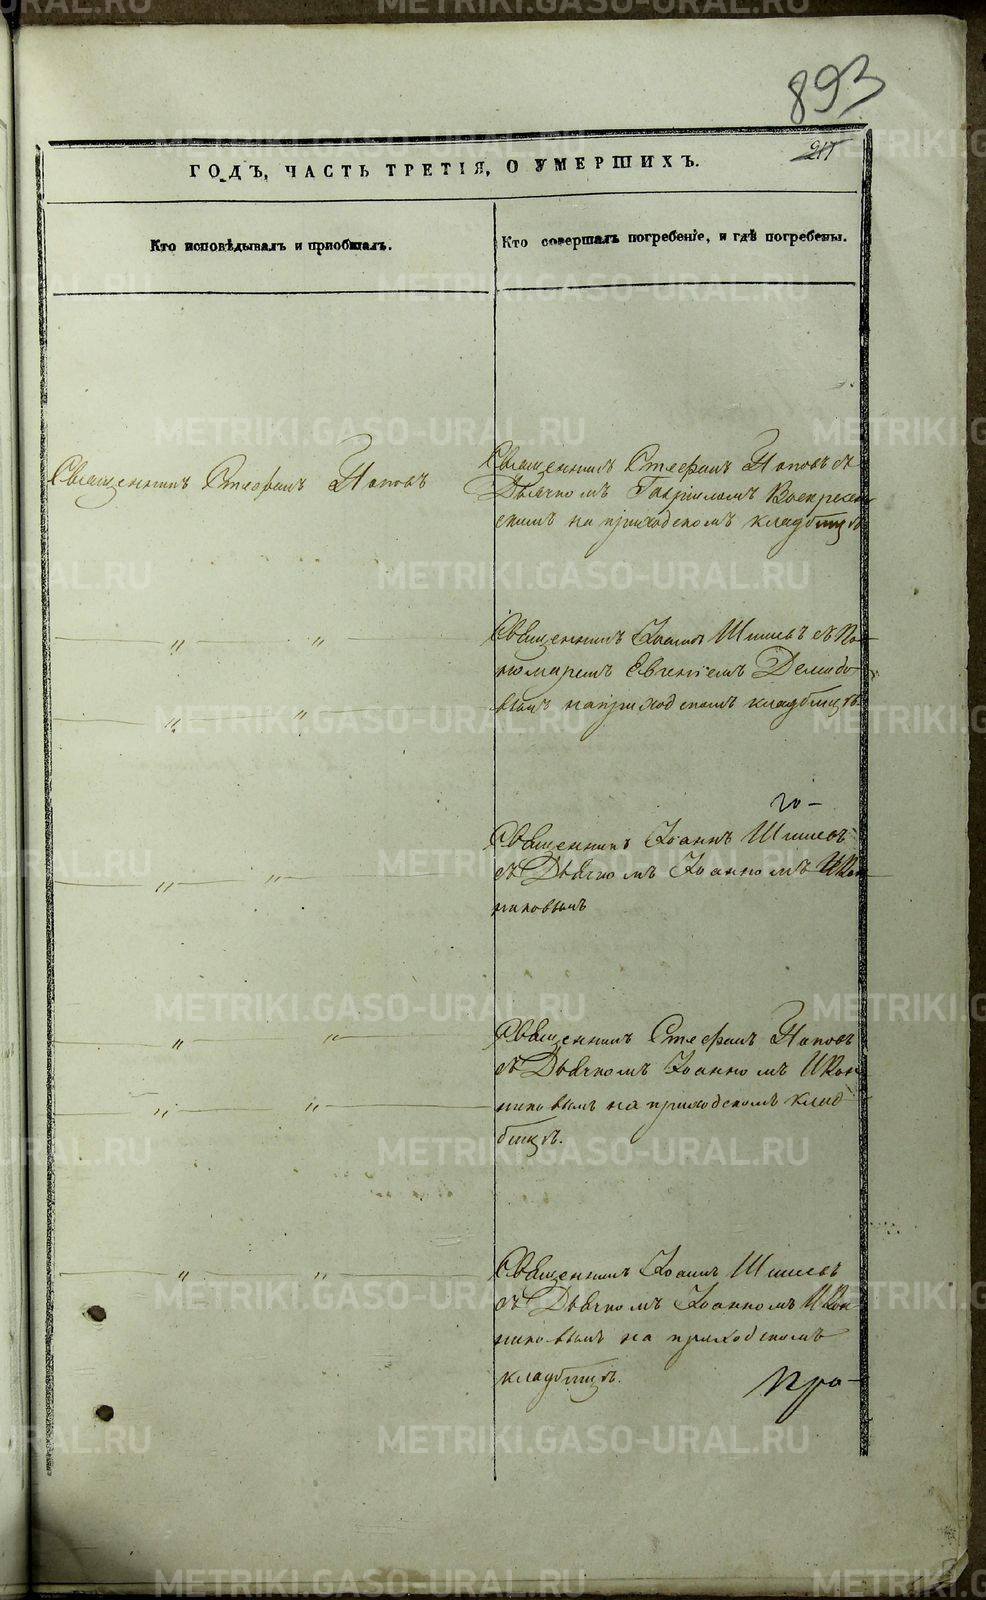 893
217
ГОДЪ, ЧАСТЬ ТРЕТІЯ, О УМЕРШИХЪ.
Кто исповѣдывалъ и пріобщалъ.
Кто совершалъ погребеніе, и гдѣ погребены.
Священникъ Стефанъ Поповъ
Священникъ Стефанъ Поповъ съ
Дьячкомъ Гавріиломъ Воскресен
скимъ на приходскомъ кладбищѣ
" "
Священникъ Іоаннъ Шишевъ съ По-
номаремъ Евгеніемъ Демидо
вымъ на приходскомъ кладбищѣ.
" "
го-
Священникъ Іоаннъ Шишевъ
съ Дьячкомъ Іоанномъ Икон
никовымъ
" "
Священникъ Стефанъ Поповъ
съ Дьячкомъ Іоанномъ Икон
никовымъ на приходскомъ клад
бищѣ.
" "
" "
Священникъ Іоаннъ Шишевъ
съ Дьячкомъ Іоанномъ Икон
никовымъ на приходскомъ
кладбищѣ.
Про-
METRIKI.GASO-URAL.RU